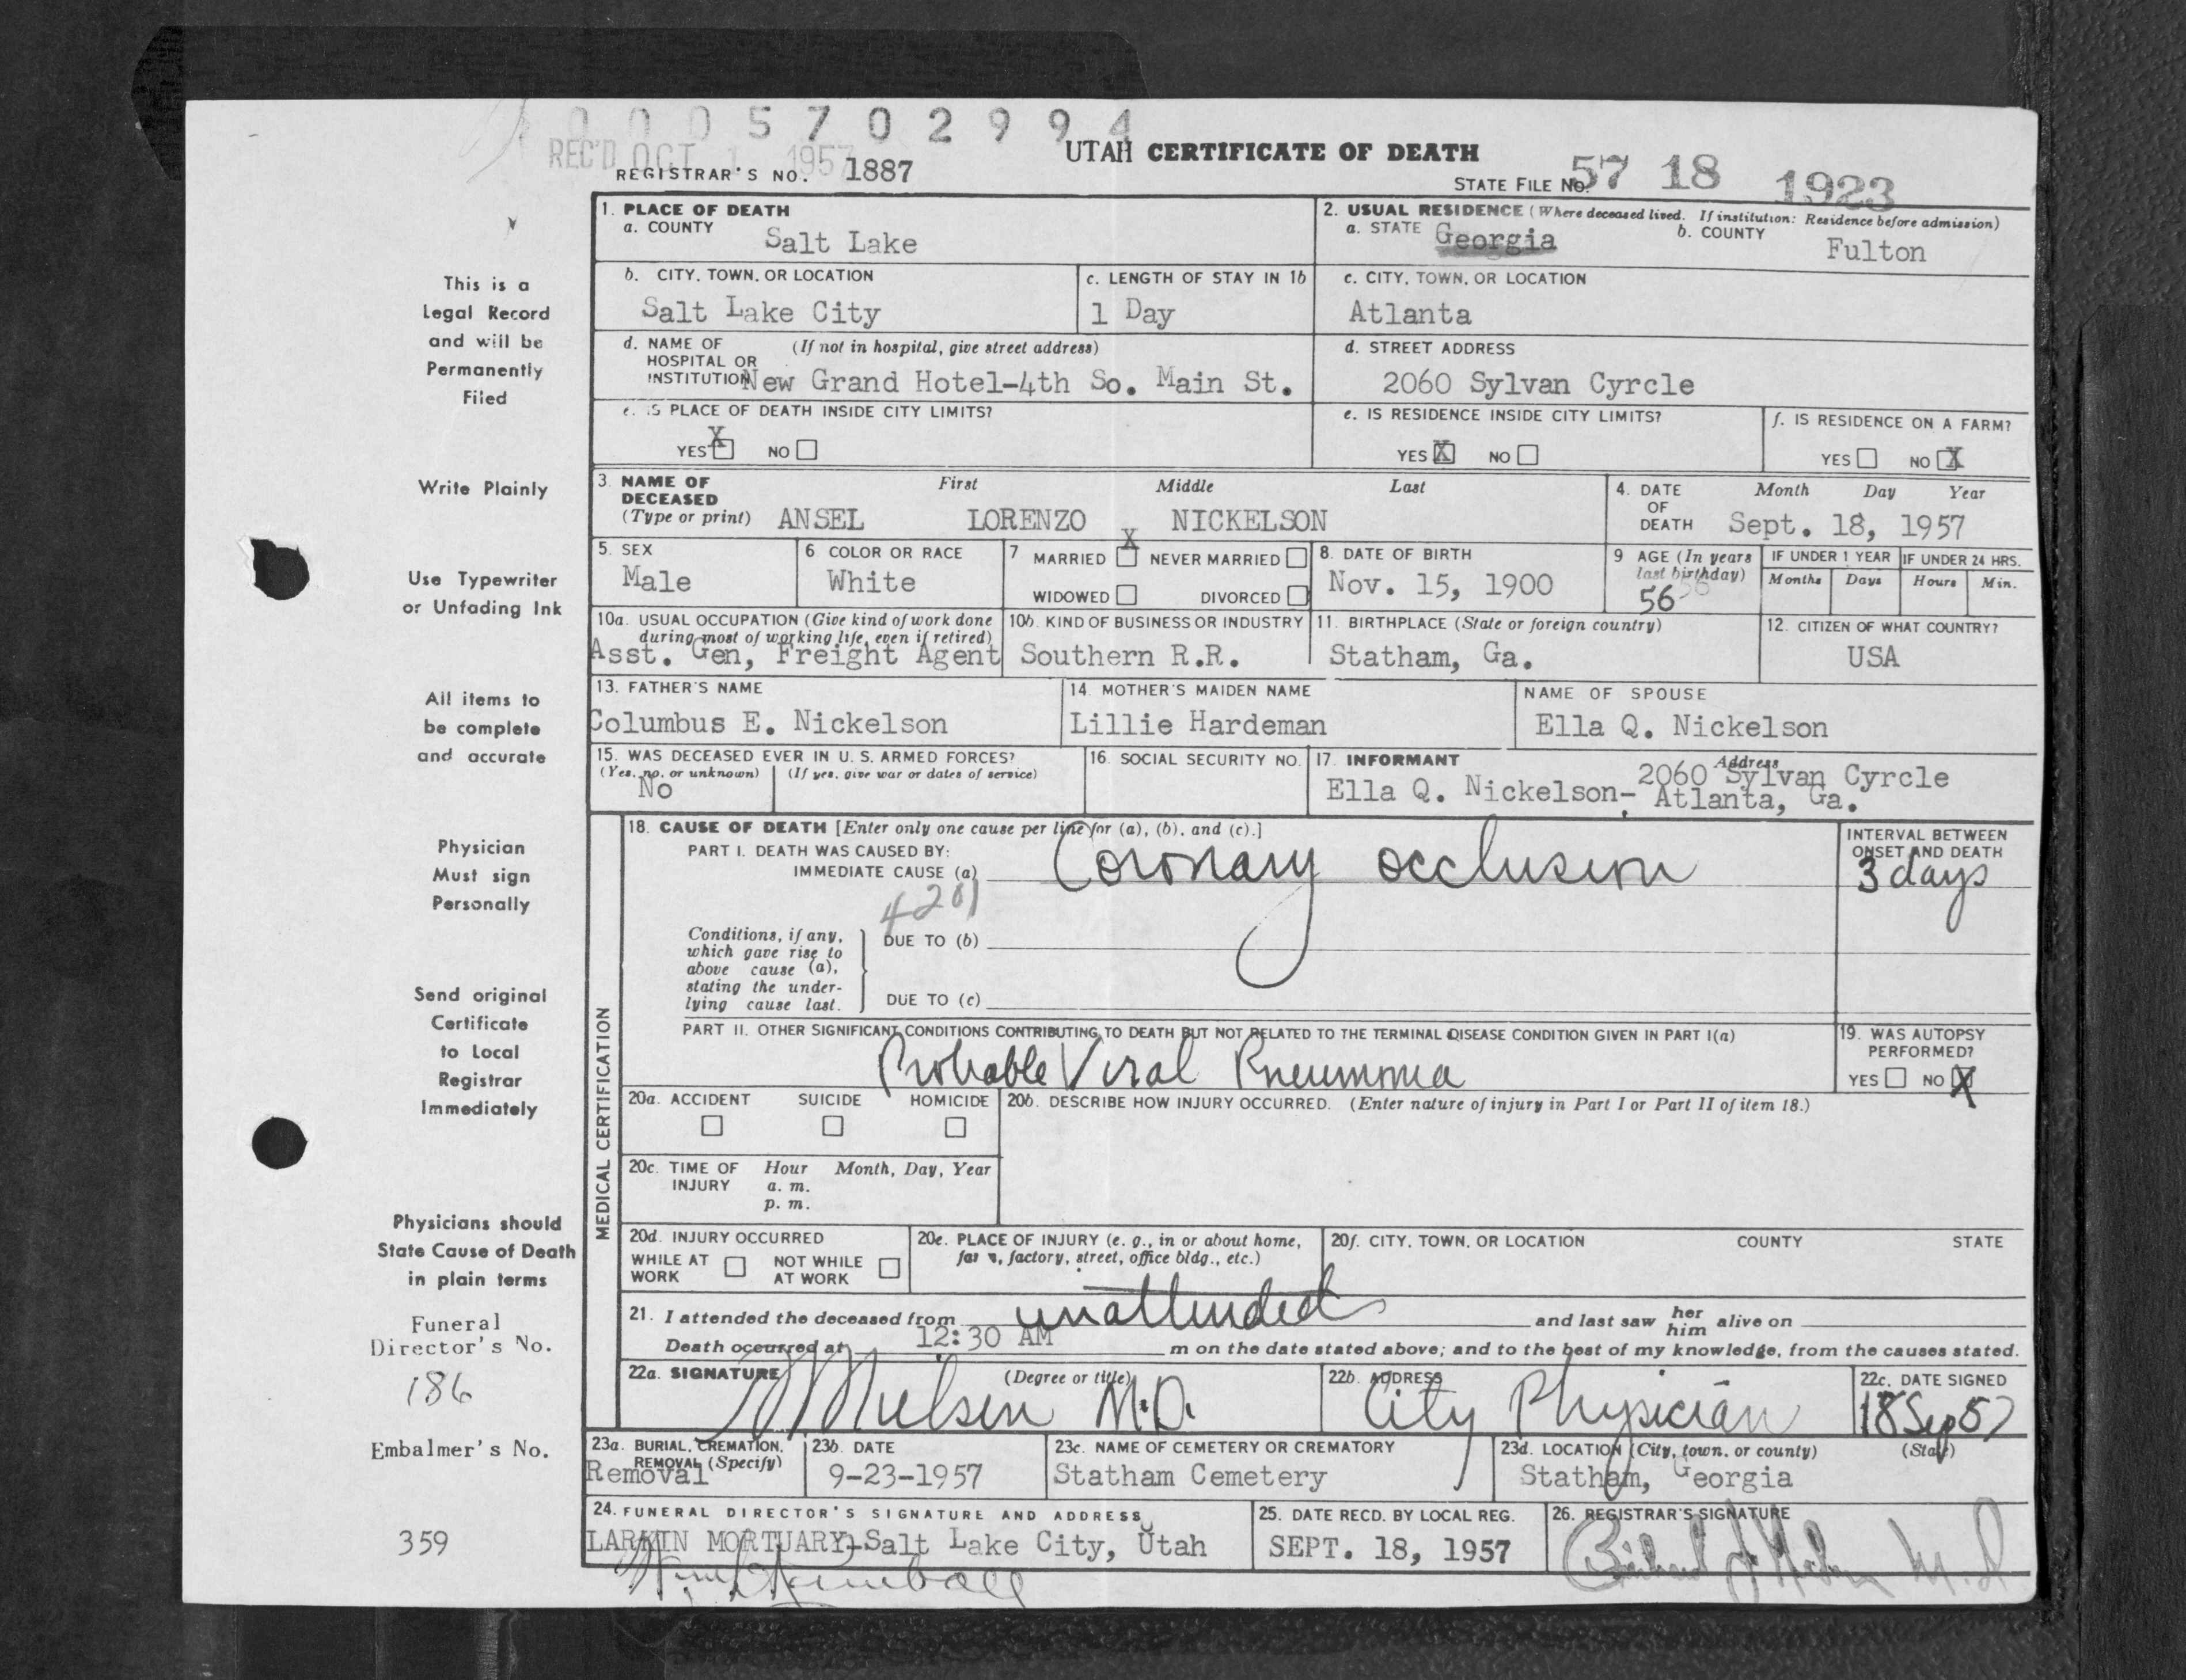 0 0 0 5 7 0 2 9 9 4
REC'D OCT 1 1957
UTAH CERTIFICATE OF DEATH
REGISTRAR'S NO. 1887
STATE FILE No. 57 18 1923
This is a
Legal Record
and will be
Permanently
Filed
Write Plainly
Use Typewriter
or Unfading Ink
All items to
be complete
and accurate
Physician
Must sign
Personally
Send original
Certificate
to Local
Registrar
Immediately
Physicians should
State Cause of Death
in plain terms
Funeral
Director's No.
186
Embalmer's No.
359
1. PLACE OF DEATH
a. COUNTY Salt Lake
2. USUAL RESIDENCE (Where deceased lived. If institution: Residence before admission)
a. STATE Georgia b. COUNTY Fulton
b. CITY, TOWN, OR LOCATION
Salt Lake City
c. LENGTH OF STAY IN 1b
1 Day
c. CITY, TOWN, OR LOCATION
Atlanta
d. NAME OF (If not in hospital, give street address)
HOSPITAL OR
INSTITUTION New Grand Hotel-4th So. Main St.
d. STREET ADDRESS
2060 Sylvan Cyrcle
e. IS PLACE OF DEATH INSIDE CITY LIMITS?
YES X NO
e. IS RESIDENCE INSIDE CITY LIMITS?
YES X NO
f. IS RESIDENCE ON A FARM?
YES NO X
3. NAME OF First Middle Last
DECEASED
(Type or print) ANSEL LORENZO NICKELSON
4. DATE Month Day Year
OF
DEATH Sept. 18, 1957
5. SEX
Male
6 COLOR OR RACE
White
7 MARRIED X NEVER MARRIED
WIDOWED DIVORCED
8. DATE OF BIRTH
Nov. 15, 1900
9 AGE (In years
last birthday)
56
IF UNDER 1 YEAR
Months Days
IF UNDER 24 HRS.
Hours Min.
10a. USUAL OCCUPATION (Give kind of work done
during most of working life, even if retired)
Asst. Gen, Freight Agent
10b. KIND OF BUSINESS OR INDUSTRY
Southern R.R.
11. BIRTHPLACE (State or foreign country)
Statham, Ga.
12. CITIZEN OF WHAT COUNTRY?
USA
13. FATHER'S NAME
Columbus E. Nickelson
14. MOTHER'S MAIDEN NAME
Lillie Hardeman
NAME OF SPOUSE
Ella Q. Nickelson
15. WAS DECEASED EVER IN U. S. ARMED FORCES?
(Yes, no, or unknown) (If yes, give war or dates of service)
No
16. SOCIAL SECURITY NO.
17. INFORMANT Address
2060 Sylvan Cyrcle
Ella Q. Nickelson- Atlanta, Ga.
MEDICAL CERTIFICATION
18. CAUSE OF DEATH [Enter only one cause per line for (a), (b), and (c).]
PART I. DEATH WAS CAUSED BY:
IMMEDIATE CAUSE (a) Coronary occlusion
INTERVAL BETWEEN
ONSET AND DEATH
3 days
4201
Conditions, if any,
which gave rise to
above cause (a),
stating the under-
lying cause last.
DUE TO (b)
DUE TO (c)
PART II. OTHER SIGNIFICANT CONDITIONS CONTRIBUTING TO DEATH BUT NOT RELATED TO THE TERMINAL DISEASE CONDITION GIVEN IN PART I(a)
Probable Viral Pneumonia
19. WAS AUTOPSY
PERFORMED?
YES NO X
20a. ACCIDENT SUICIDE HOMICIDE
20b. DESCRIBE HOW INJURY OCCURRED. (Enter nature of injury in Part I or Part II of item 18.)
20c. TIME OF Hour Month, Day, Year
INJURY a. m.
p. m.
20d. INJURY OCCURRED
WHILE AT NOT WHILE
WORK AT WORK
20e. PLACE OF INJURY (e. g., in or about home,
farm, factory, street, office bldg., etc.)
20f. CITY, TOWN, OR LOCATION COUNTY STATE
21. I attended the deceased from unattended and last saw her him alive on
Death occurred at 12:30 AM m on the date stated above; and to the best of my knowledge, from the causes stated.
22a. SIGNATURE (Degree or title)
Nielsen M.D.
22b. ADDRESS
City Physician
22c. DATE SIGNED
18 Sep 57
23a. BURIAL, CREMATION,
REMOVAL (Specify)
Removal
23b. DATE
9-23-1957
23c. NAME OF CEMETERY OR CREMATORY
Statham Cemetery
23d. LOCATION (City, town, or county) (State)
Statham, Georgia
24. FUNERAL DIRECTOR'S SIGNATURE AND ADDRESS
LARKIN MORTUARY-Salt Lake City, Utah
25. DATE RECD. BY LOCAL REG.
SEPT. 18, 1957
26. REGISTRAR'S SIGNATURE
M.D.